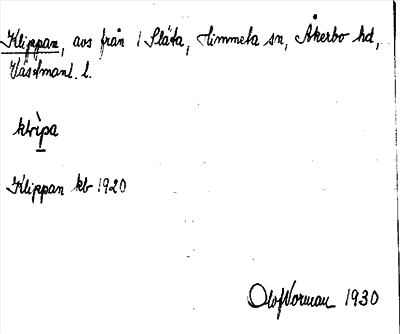 Klippan, avs från 1 Släta, Himmeta sn, Åkerbo hd,
Västmanl. l.
klìpa
Klippan kb 1920
Olof Norman 1930